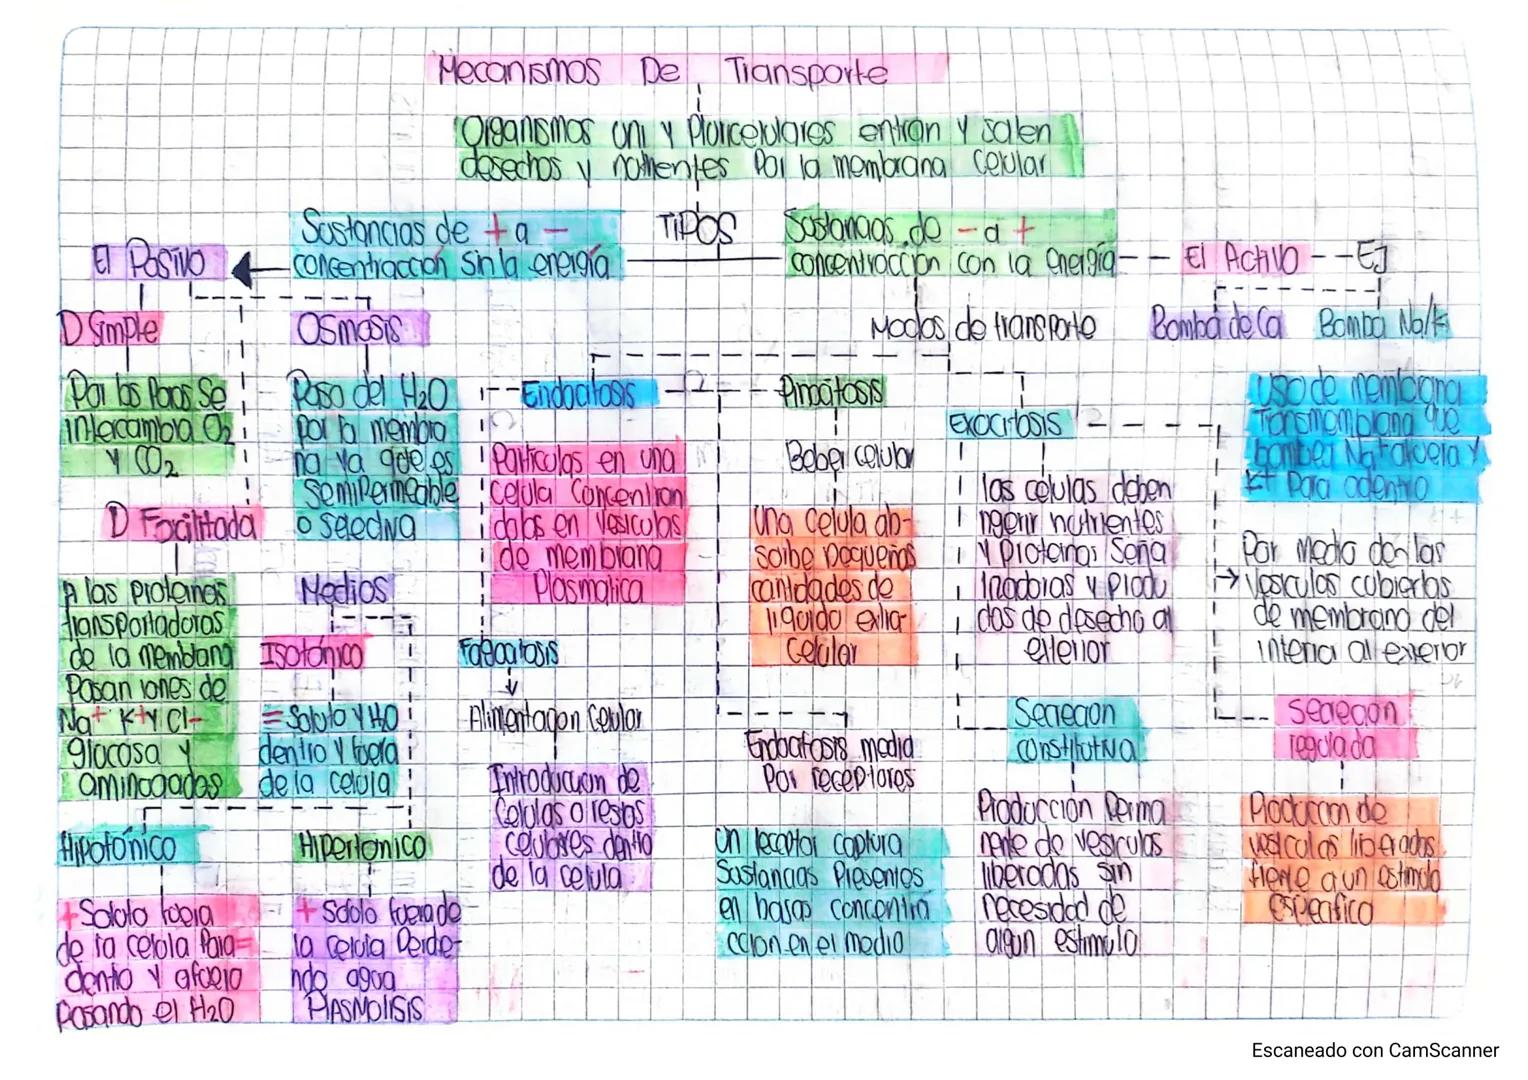 Mecanismos De Transporte
Organismos uni y Pluricelulares entran y salen
desechos y nutrientes Por la membrana Celular
TIPOS
Sustancias de + a -
concentracción Sin la energía
Sustancias de - a +
concentraccion con la energía
El Pasivo
El Activo
EJ
D Simple
Osmosis
Modos de transporte
Bomba de Ca
Bomba Na/K
Por los Poros Se
intercambia O2
y CO2
Paso del H2O
por la membra
na ya que es
SemiPermeable
o selectiva
Endocitosis
Pinocitosis
Exocitosis
Uso de membrana
Transmembrana que
bombea Na+ afuera y
K+ Para adentro
Beber celular
Particulas en una
celula Concentran
dolas en vesiculas
de membrana
Plasmatica
D Facilitada
Una celula ab-
sorbe pequeñas
cantidades de
liquido extra-
Celular
las celulas deben
ingerir nutrientes
y Proteinas Seña
lizadoras y Produ
dos de desecho al
exterior
Por medio de las
vesiculas cubiertas
de membrana del
interia al exterior
A las Proteinas
transportadoras
de la membrana
Pasan iones de
Na+ K+ y Cl-
glucosa y
aminoacidos
Medios
Isotónico
= Soluto y H2O
dentro y fuera
de la celula
Fagocitosis
Alimentacion Celular
Introduccion de
Celulas o restos
celulares dentro
de la celula
Endocitosis media
Por receptores
Un receptor captura
Sustancias Presentes
en bajas concentra
ccion en el medio
Secrecion
constitutiva
Produccion Perma
nente de vesiculas
liberadas Sin
necesidad de
algun estimulo
Secrecion
regulada
Produccion de
vesiculas liberadas
frente a un estimulo
Especifico
Hipotónico
Hipertonico
+ Soluto fuera
de la celula Para =
dentro y afuera
Pasando el H2O
+ Soluto fuera de
la celula Perde-
ndo agua
PlASMOlISIS
Escaneado con CamScanner